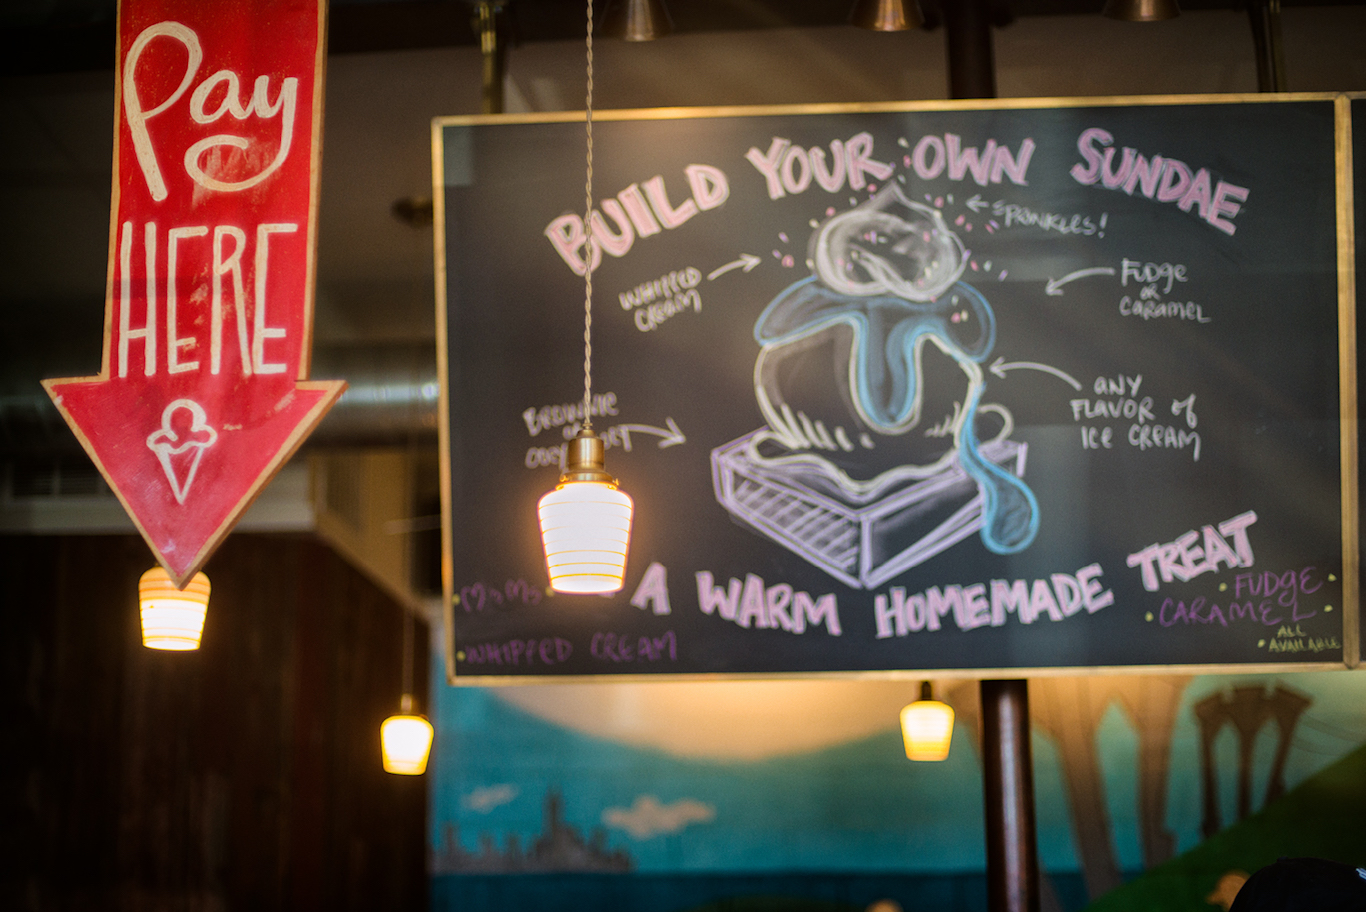 Pay
HERE
BUILD YOUR OWN SUNDAE
SPRINKLES!
WHIPPED
CREAM
FUDGE
OR
CARAMEL
BROWNIE
ANY
FLAVOR of
ICE CREAM
A WARM HOMEMADE TREAT
• WHIPPED CREAM
• FUDGE •
• CARAMEL •
ALL
• AVAILABLE